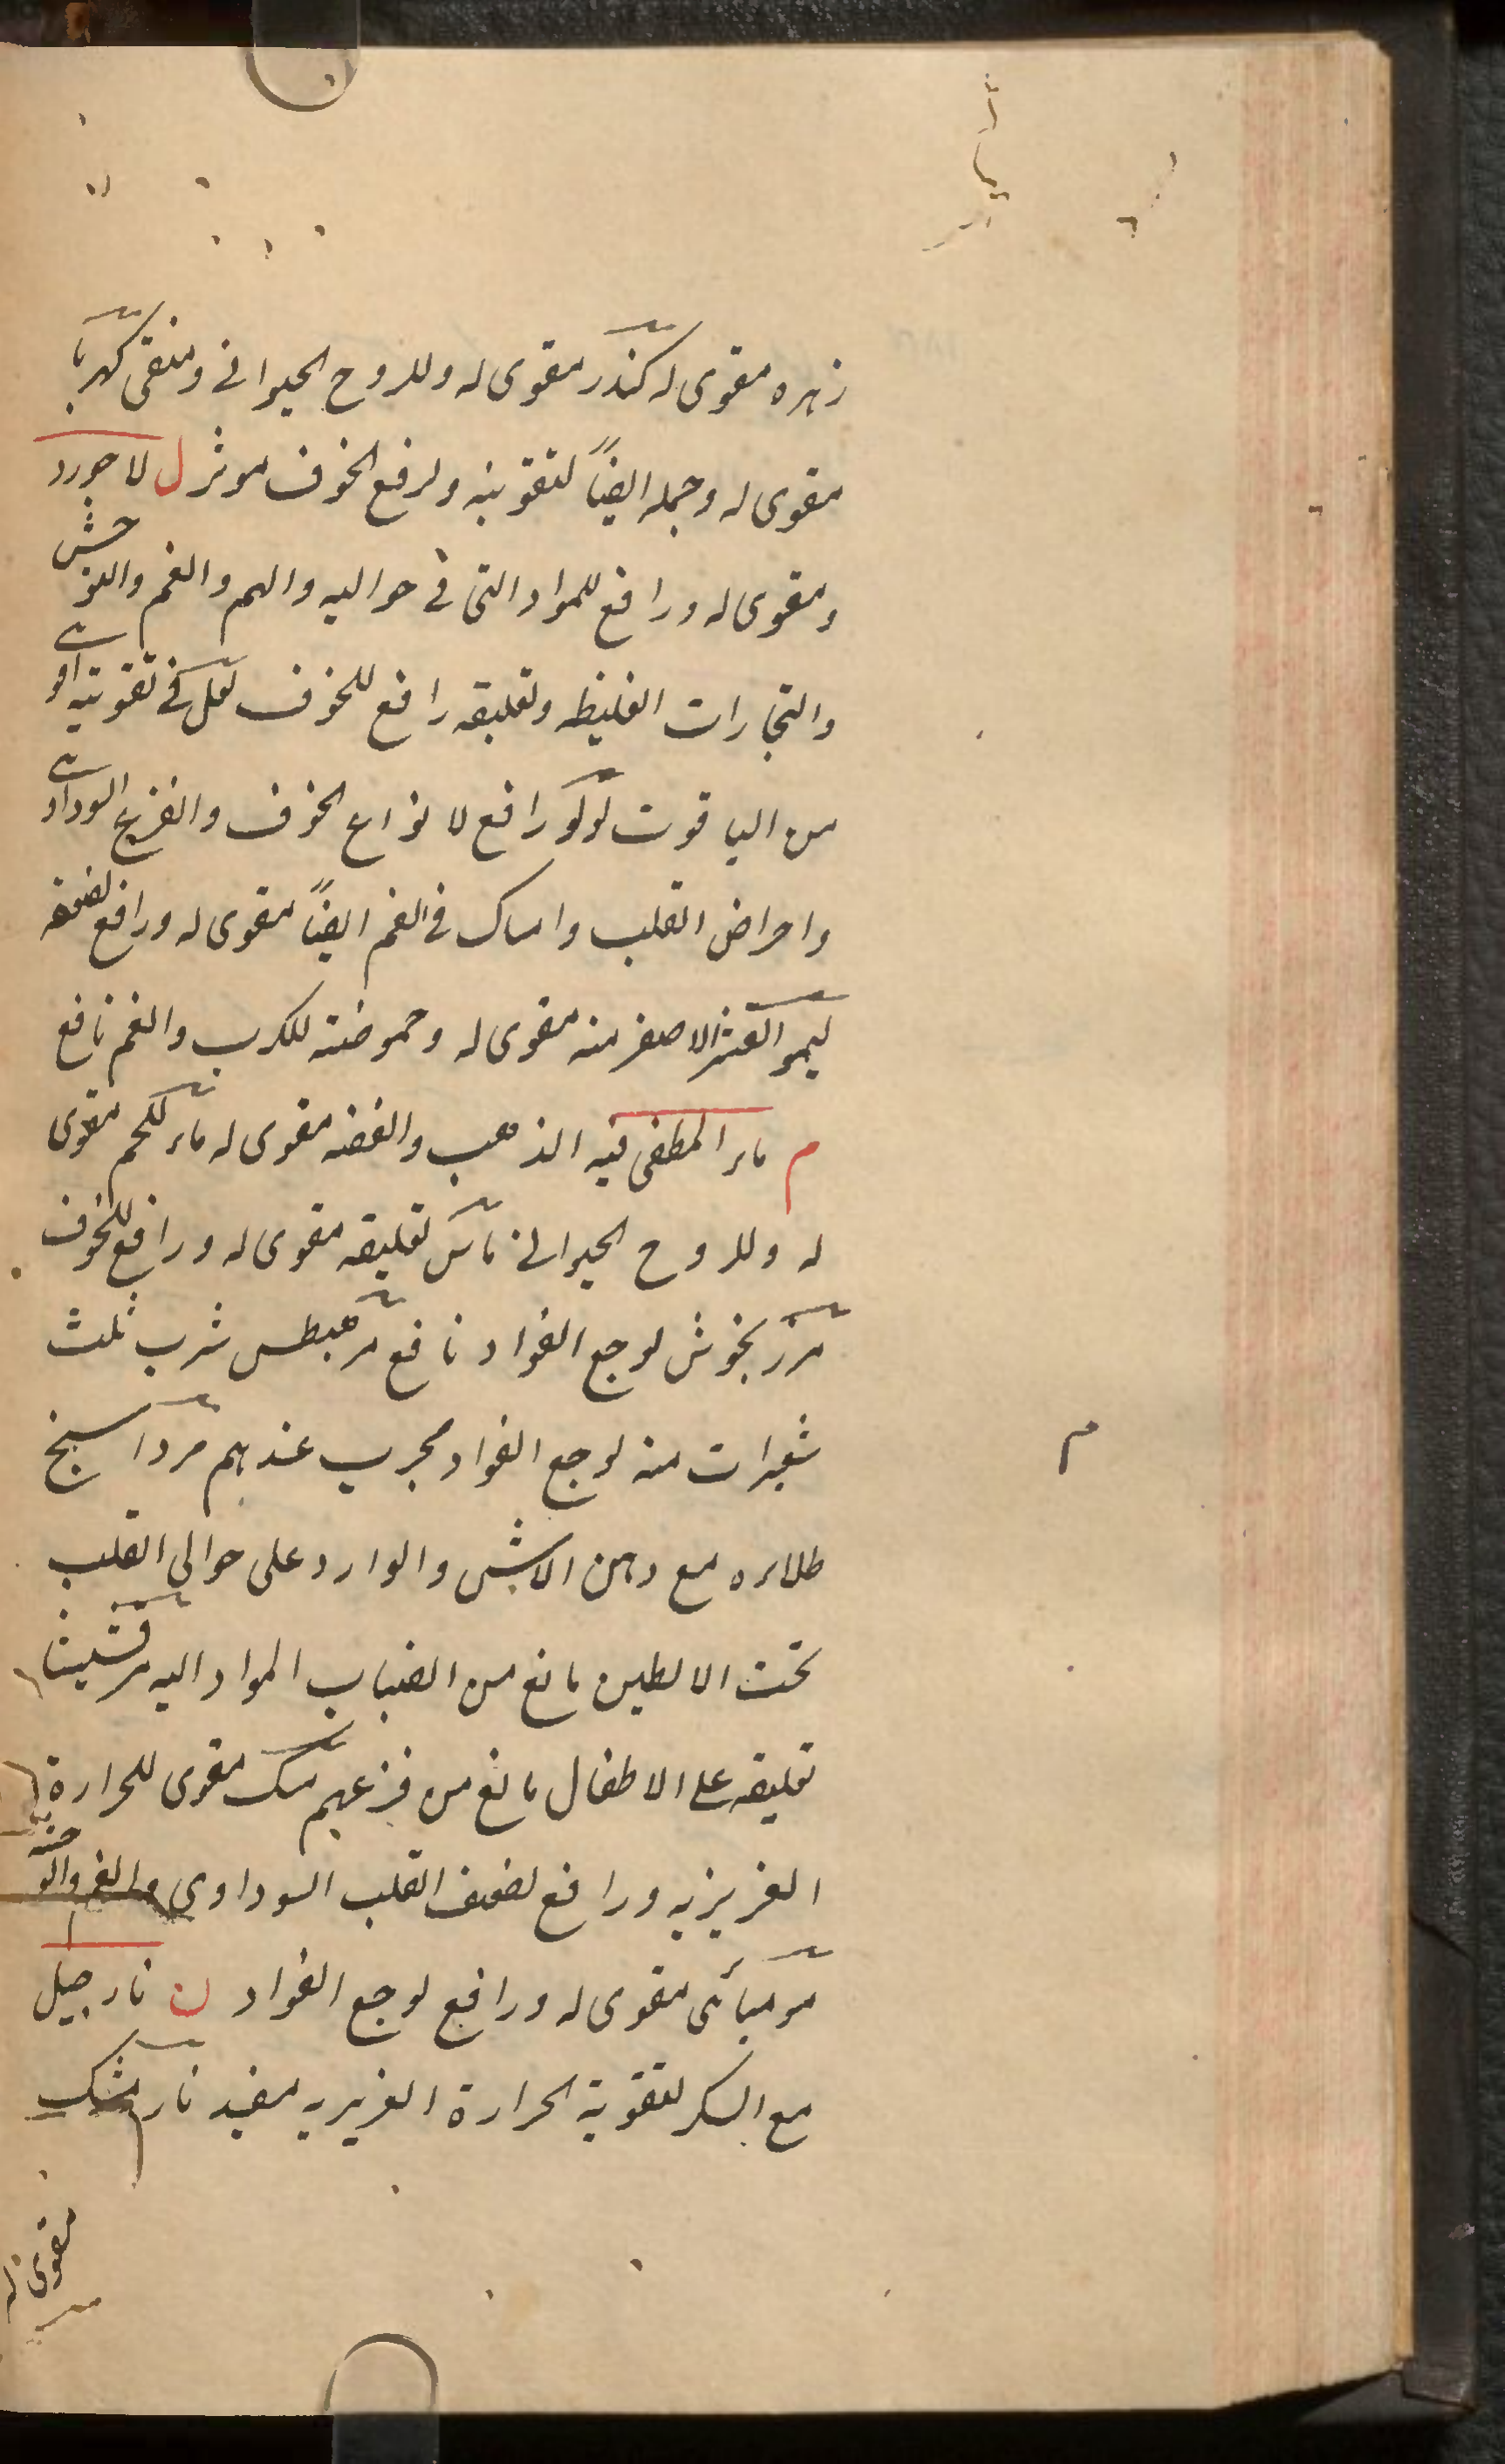 زهره مقوى له كندر مقوى له وللروح الحيوانى ومنقى كهربا
مقوى له وحمله ايضاً لتقويته ولرفع الخوف موثر ل لاجورد
ومقوى له ورافع للمواد التى فى حواليه والهم والغم والتوحش
والبخارات الغليظه وتعليقه رافع للخوف لعل فى تقويته اقوى
من الياقوت لولو رافع لانواع الخوف والفزع السوداوى
وامراض القلب وامساك فى الفم ايضاً مقوى له ورافع لضعفه
ليمو القشر الاصفر منه مقوى له وحموضته للكرب والغم نافع
م ماء المطفى فيه الذهب والفضه مقوى له ماء اللحم مقوى
له وللروح الحيوانى ماس تعليقه مقوى له ورافع للخوف
مرزنجوش لوجع الفواد نافع مرهيطس شرب ثلث
شعيرات منه لوجع الفواد مجرب عندهم مرداسنج
طلاءه مع دهن الاس والوارد على حوالى القلب
تحت الابطين مانع من انصباب المواد اليه مرقشيثا
تعليقه على الاطفال مانع من فزعهم مسك مقوى للحرارة
الغريزيه ورافع لضعف القلب السوداوى والغم والتوحش
موميائى مقوى له ورافع لوجع الفواد ن نارجيل
مع السكر لتقوية الحرارة الغريزيه مفيد نارمشك
مقوى له
م